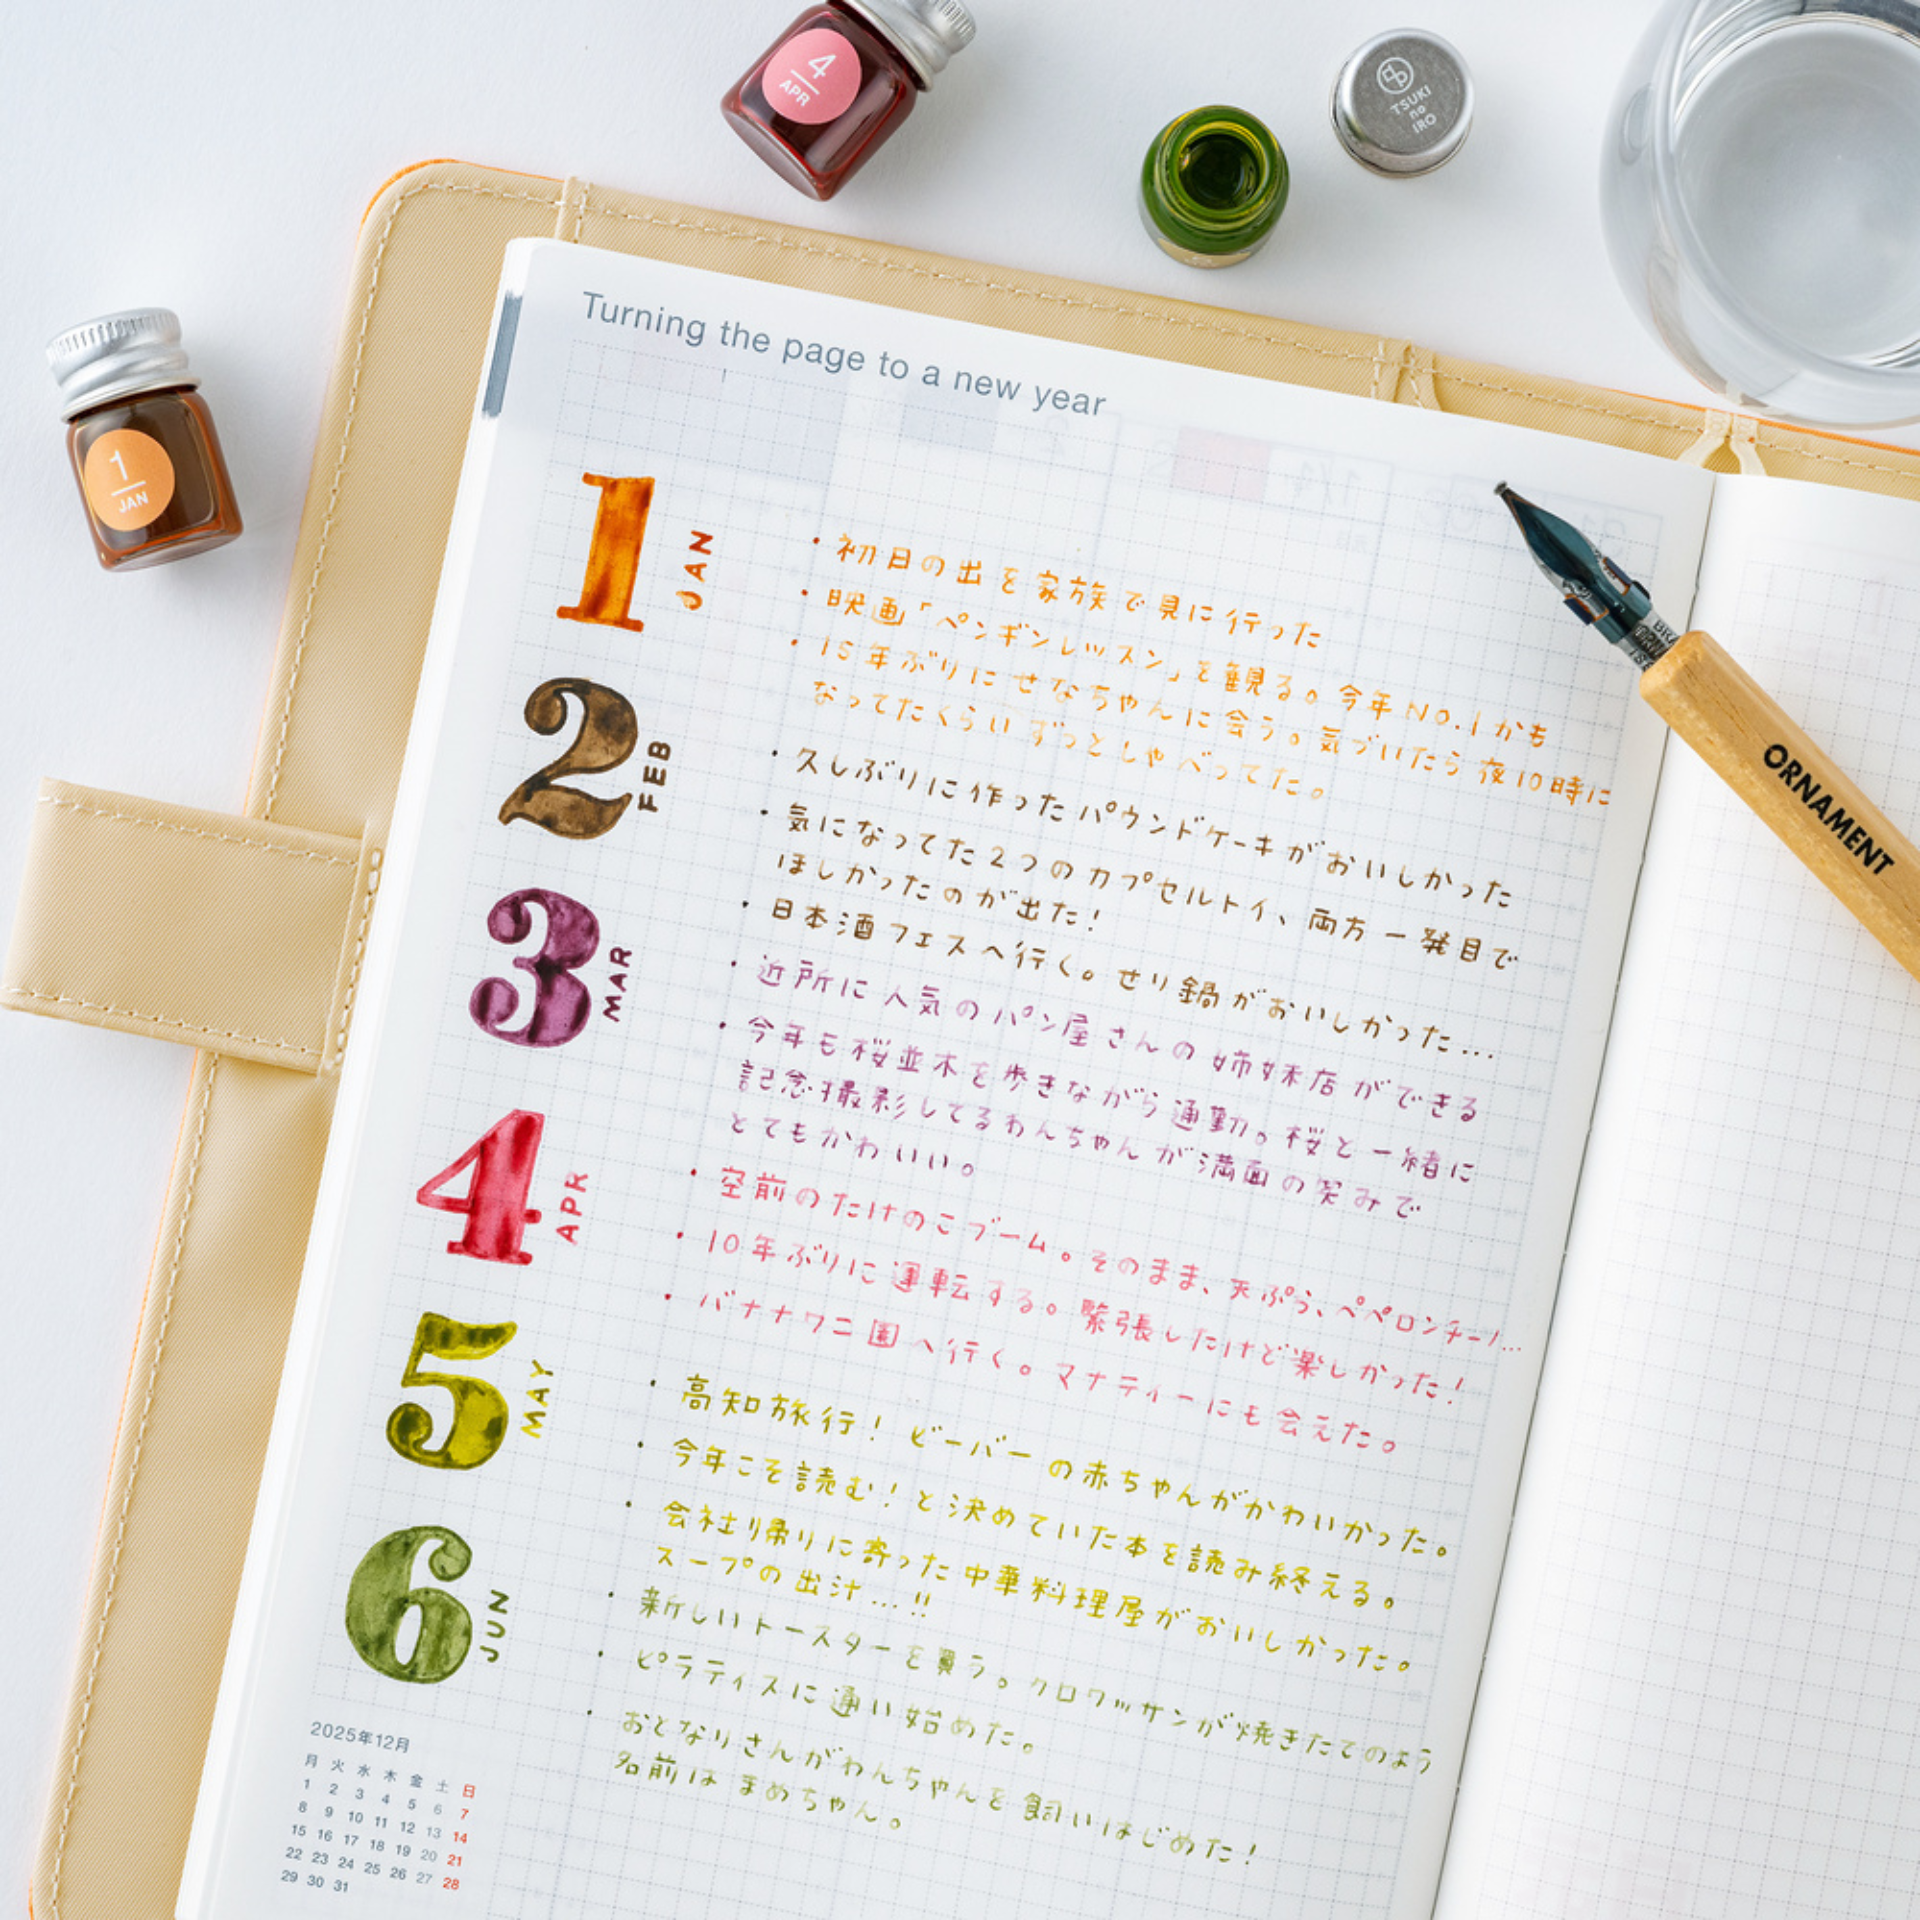 4
APR
TSUKI
no
IRO
1
JAN
Turning the page to a new year
1
JAN
・初日の出を家族で見に行った
・映画「ペンギンレッスン」を観る。今年NO.1かも
・15年ぶりにせなちゃんに会う。気づいたら夜10時に
なってたくらいずっとしゃべってた。
2
FEB
・久しぶりに作ったパウンドケーキがおいしかった
・気になってた2つのカプセルトイ、両方一発目で
ほしかったのが出た!
・日本酒フェスへ行く。せり鍋がおいしかった...
3
MAR
・近所に人気のパン屋さんの姉妹店ができる
・今年も桜並木を歩きながら通勤。桜と一緒に
記念撮影してるわんちゃんが満面の笑みで
とてもかわいい。
4
APR
・空前のたけのこブーム。そのまま、天ぷら、ペペロンチーノ...
・10年ぶりに運転する。緊張したけど楽しかった!
・バナナワニ園へ行く。マナティーにも会えた。
5
MAY
・高知旅行!ビーバーの赤ちゃんがかわいかった。
・今年こそ読む!と決めていた本を読み終える。
・会社帰りに寄った中華料理屋がおいしかった。
スープの出汁...!!
6
JUN
・新しいトースターを買う。クロワッサンが焼きたてのよう
・ピラティスに通い始めた。
・おとなりさんがわんちゃんを飼いはじめた!
名前はまめちゃん。
2025年12月
月 火 水 木 金 土 日
1 2 3 4 5 6 7
8 9 10 11 12 13 14
15 16 17 18 19 20 21
22 23 24 25 26 27 28
29 30 31
ORNAMENT